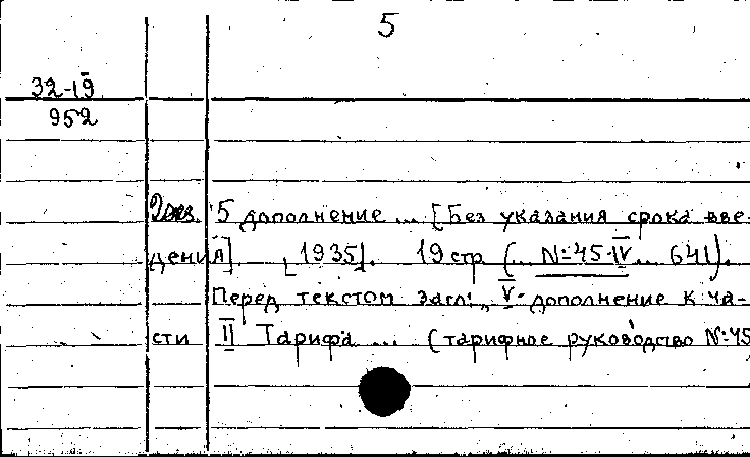 5
32-19
952
2 экз. 5 дополнение ... [Без указания срока вве-
дения]. [1935]. 19 стр (... №45-IV ... 641).
Перед текстом загл: „V-дополнение к ча-
сти II Тарифа ... (тарифное руководство №45